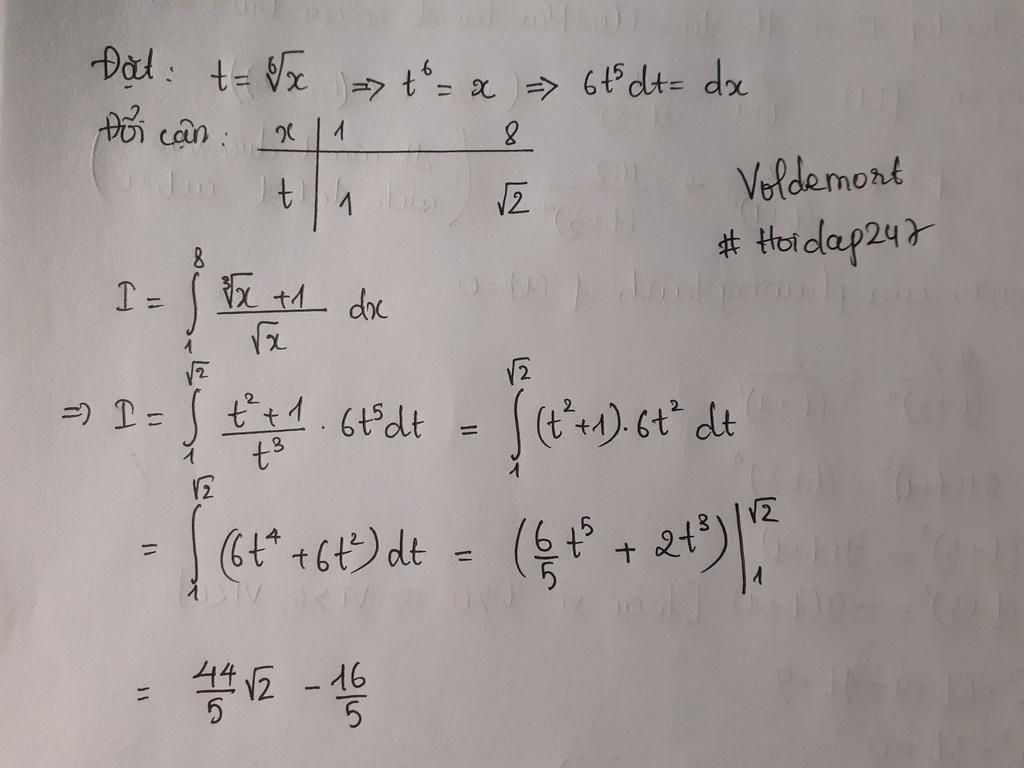 Đặt: t = ⁶√x ⇒ t⁶ = x ⇒ 6t⁵dt = dx
Đổi cận: x | 1 8
t | 1 √2
Voldemort
# Hoidap247
I = ∫₁⁸ (∛x + 1)/√x dx
⇒ I = ∫₁^√2 (t² + 1)/t³ . 6t⁵dt = ∫₁^√2 (t² + 1). 6t² dt
= ∫₁^√2 (6t⁴ + 6t²) dt = (6/5 t⁵ + 2t³) |₁^√2
= 44/5 √2 - 16/5